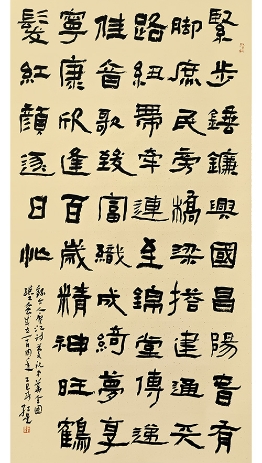 緊步錘鐮興國昌陽春有
脚庶民旁橋梁搭建通天
路紐帶牽連至錦堂傳遞
佳音歌致富織成綺夢享
寧康欣逢百歲精神旺鶴
髮紅顏逐日忙